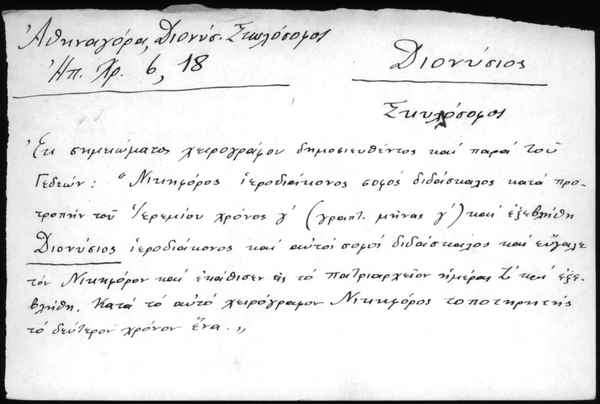 Ἀθηναγόρα, Διονύσ. Σκυλόσοφος
Ἠπ. Χρ. 6, 18
Διονύσιος
Σκυλόσοφος
Ἐκ σημειώματος χειρογράφου δημοσιευθέντος καί παρά τοῦ
Γεδεών: "Νικηφόρος ἱεροδιάκονος σοφός διδάσκαλος κατά προ-
τροπήν τοῦ Ἱερεμίου χρόνος γ' (γραπτ. μῆνας γ') καί ἐξεβλήθη
Διονύσιος ἱεροδιάκονος καί αὐτοί σοφοί διδάσκαλος καί εὔγαλε
τόν Νικηφόρον καί ἐκάθισεν εἰς τό πατριαρχεῖον ἡμέρας καί ἐξε-
βλήθη. Κατά τό αὐτό χειρόγραφον Νικηφόρος τοποτηρητής
τό δεύτερον χρόνον ἕνα.,,